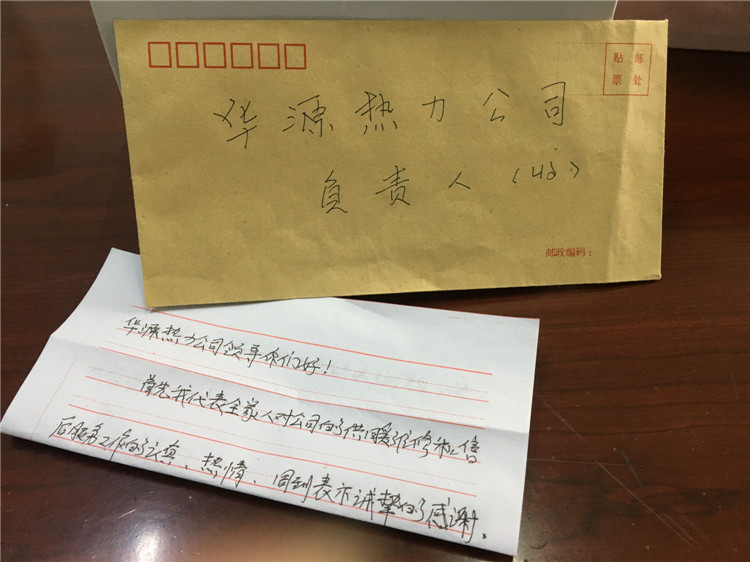 贴邮
票处
华源热力公司
负责人(收)
邮政编码:
华源热力公司领导你们好!
首先我代表全家人对公司的供暖维修和售
后服务工作的认真、热情、周到表示诚挚的感谢。